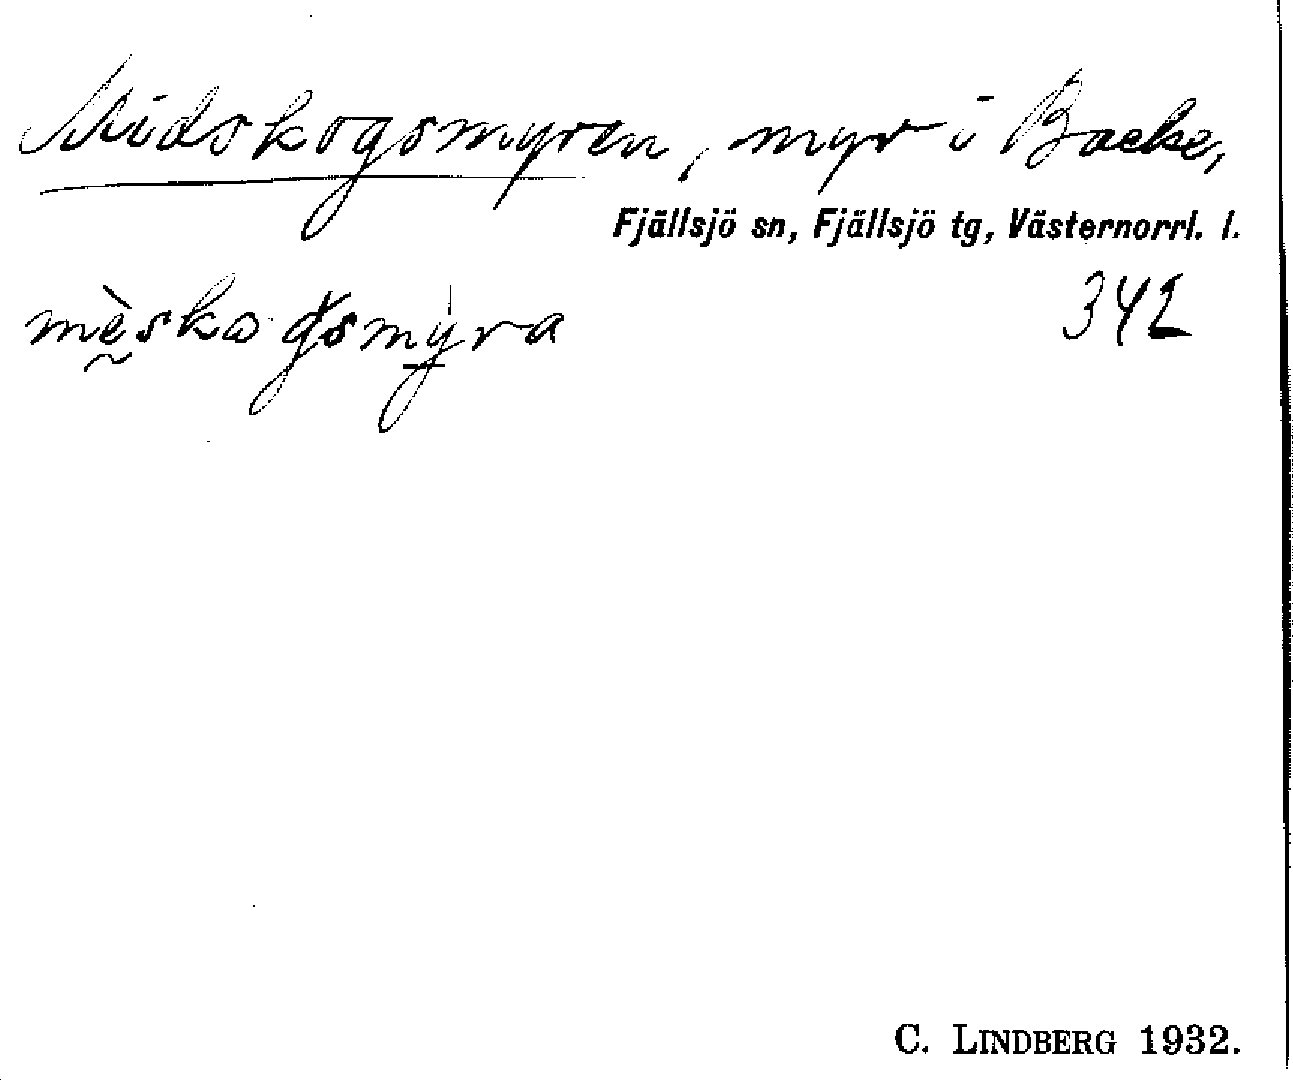 Midskogsmyren, myr i Backe,
Fjällsjö sn, Fjällsjö tg, Västernorrl. l.
mèskogsmyra 342
C. LINDBERG 1932.